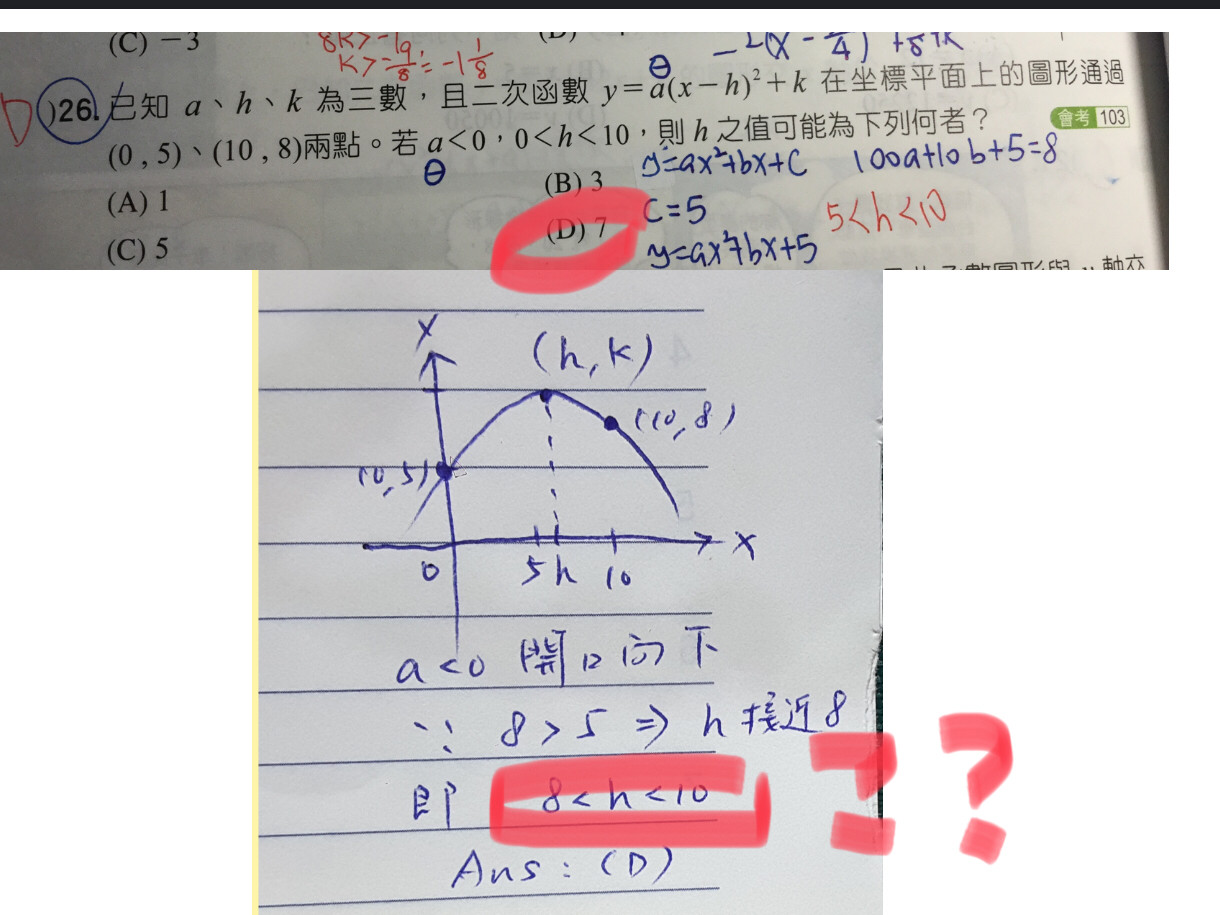 (C) −3
8k>-9
k>-9/8=-1 1/8
+8+k
D
( )26. 已知 a、h、k 為三數，且二次函數 y=a(x−h)²+k 在坐標平面上的圖形通過
(0 , 5)、(10 , 8)兩點。若 a<0，0<h<10，則 h 之值可能為下列何者？ 會考 103
(A) 1
(B) 3
(C) 5
(D) 7
y=ax²+bx+c
100a+10b+5=8
c=5
5<h<10
y=ax²+bx+5
(h,k)
(10,8)
(0,5)
x
0
5 h 10
a<0 開口向下
∵ 8>5 ⇒ h 接近8
即 8<h<10
??
Ans：(D)